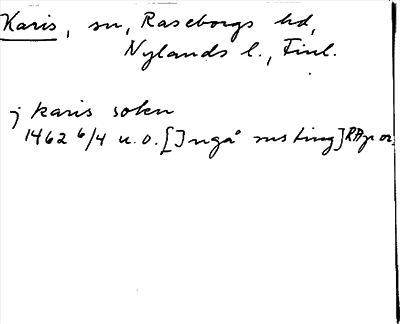 Karis, sn, Raseborgs hd,
Nylands l., Finl.
j karis sokn
1462 6/4 u.o. [Ingå sns ting] RApr or.